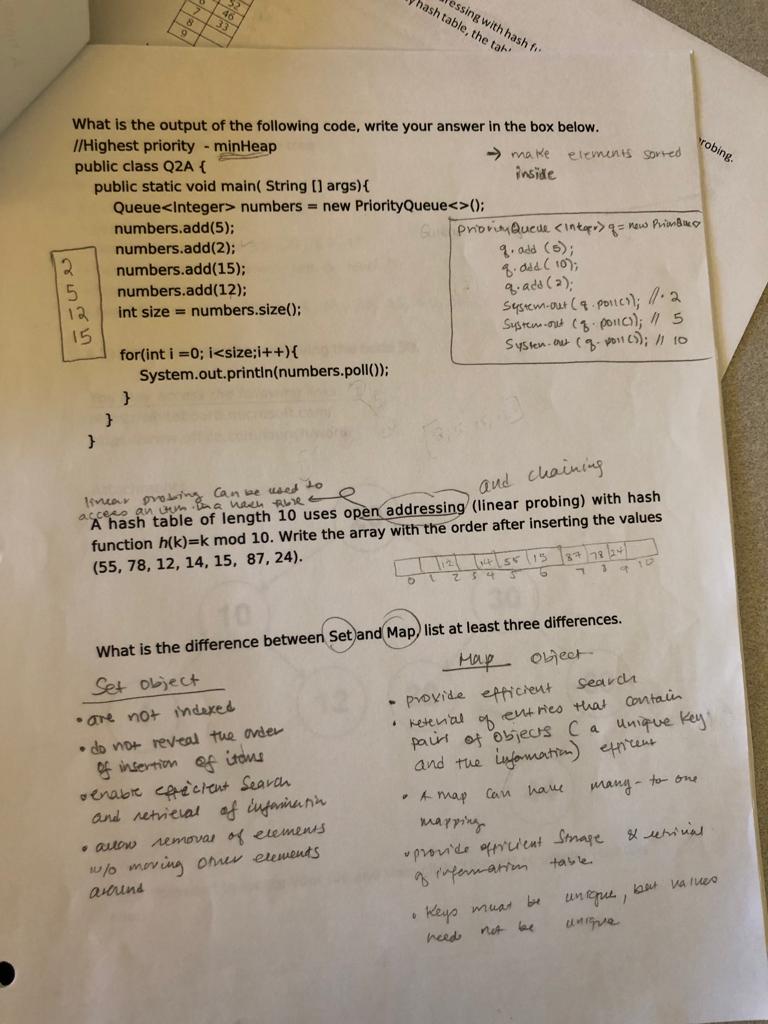 52
46
7 33
8
9
ressing with hash f
hash table, the tab
robing.
What is the output of the following code, write your answer in the box below.
//Highest priority - minHeap
→ make elements sorted
inside
public class Q2A {
public static void main( String [] args){
Queue<Integer> numbers = new PriorityQueue<>();
numbers.add(5);
numbers.add(2);
numbers.add(15);
numbers.add(12);
int size = numbers.size();
for(int i =0; i<size;i++){
System.out.println(numbers.poll());
}
}
}
2
5
12
15
PriorityQueue <Integer> q = new
q.add (5);
q.add (10);
q.add (2);
System.out (q.poll()); // 2
System.out (q.poll()); // 5
System.out (q.poll()); // 10
linear probing can be used to
access an item in a hash table
and chaining
A hash table of length 10 uses open addressing (linear probing) with hash
function h(k)=k mod 10. Write the array with the order after inserting the values
(55, 78, 12, 14, 15, 87, 24).
12 14 55 15 87 78 24
0 1 2 3 4 5 6 7 8 9 10
What is the difference between Set and Map, list at least three differences.
Set object
• are not indexed
• do not reveal the order
of insertion of items
• enable efficient search
and retrieval of information
• allow removal of elements
w/o moving other elements
around
Map object
• provide efficient search
• of entries that contain
pairs of objects ( a unique key
and the information) efficent
• A map can have many-to one
mapping
• provide efficient storage &
of information table
• Keys must be unique, but values
need not be unique